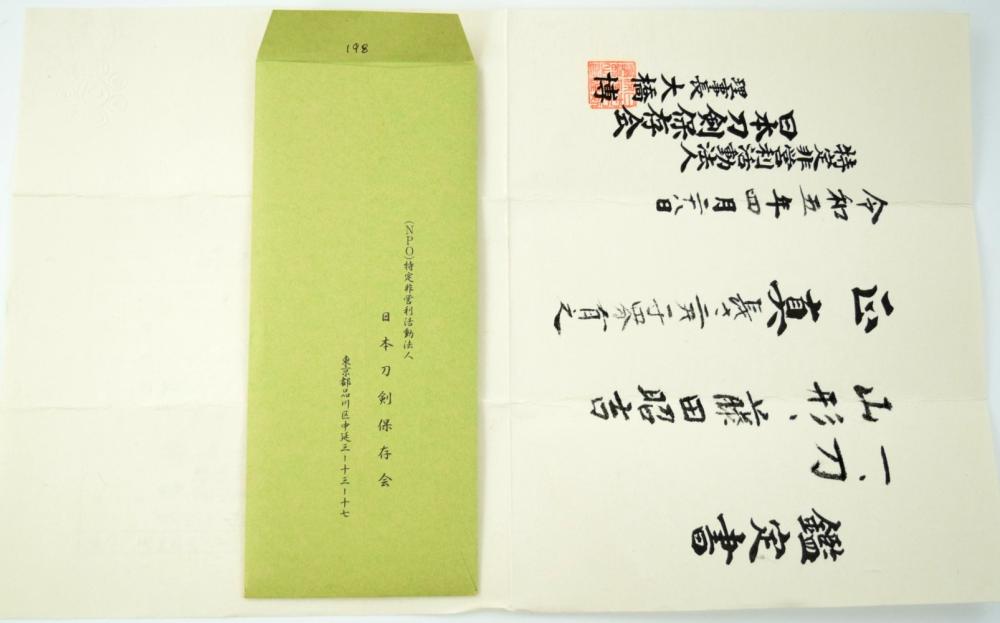 鑑定書
一、刀
山形、藤田昭吉
正真
長サ、二尺一寸四分有之
令和五年四月二八日
特定非営利活動法人
日本刀剣保存会
理事長 大橋 博
198
(NPO)特定非営利活動法人
日本刀剣保存会
東京都品川区中延三ー十三ー十七